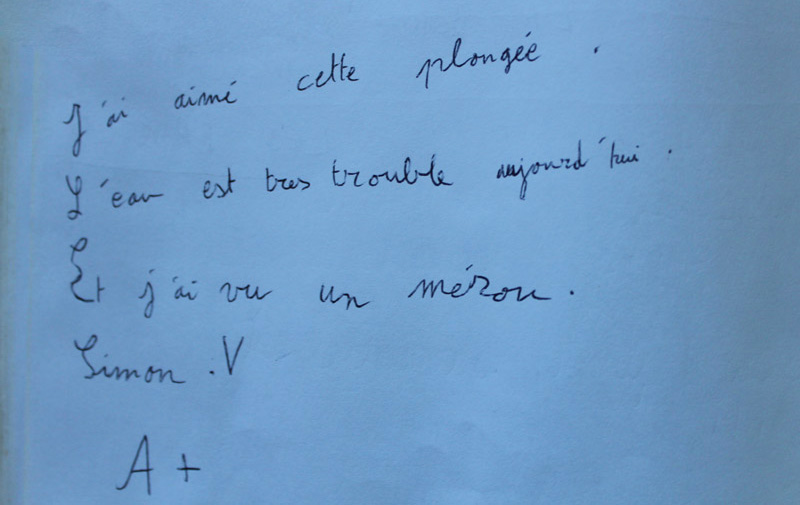 J'ai aimé cette plongée .
L'eau est tres trouble aujourd'hui .
Et j'ai vu un mérou .
Simon .V
A +